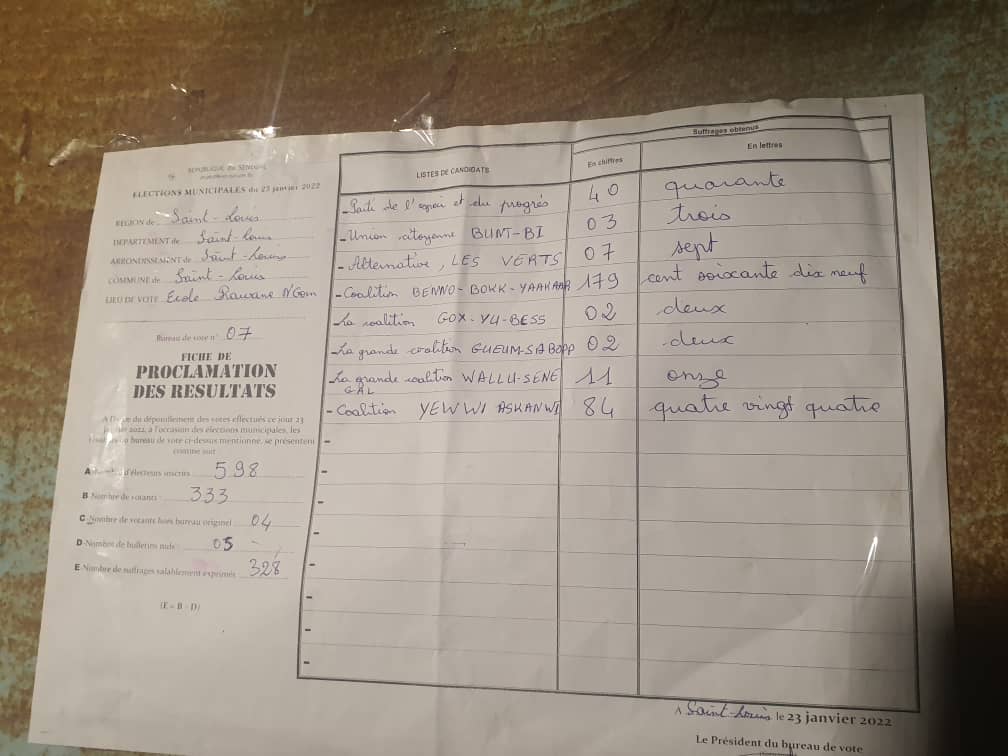 REPUBLIQUE DU SENEGAL
ELECTIONS MUNICIPALES du 23 janvier 2022
REGION de Saint-Louis
DEPARTEMENT de Saint-Louis
ARRONDISSEMENT de Saint-Louis
COMMUNE de Saint-Louis
LIEU DE VOTE Ecole Rawane N'Gom
Bureau de vote n° 07
FICHE DE
PROCLAMATION
DES RESULTATS
du dépouillement des votes effectués ce jour 23
janvier 2022, à l'occasion des élections municipales, les
du bureau de vote ci-dessus mentionné, se présentent
comme suit
A d'électeurs inscrits 598
B Nombre de votants : 333
C Nombre de votants hors bureau originel 04
D Nombre de bulletins nuls : 05
E Nombre de suffrages valablement exprimés 328
(E = B - D)
LISTES DE CANDIDATS
Suffrages obtenus
En chiffres En lettres
- Parti de l'espoir et du progrés 40 quarante
- Union citoyenne BUNT-BI 03 trois
- Alternative, LES VERTS 07 sept
- Coalition BENNO-BOKK-YAAKAAR 179 cent soixante dix neuf
La coalition GOX-YU-BESS 02 deux
- La grande coalition GUEUM-SA BOPP 02 deux
La grande coalition WALLU-SENE GAL 11 onze
- Coalition YEWWI ASKANWI 84 quatre vingt quatre
A Saint-Louis le 23 janvier 2022
Le Président du bureau de vote